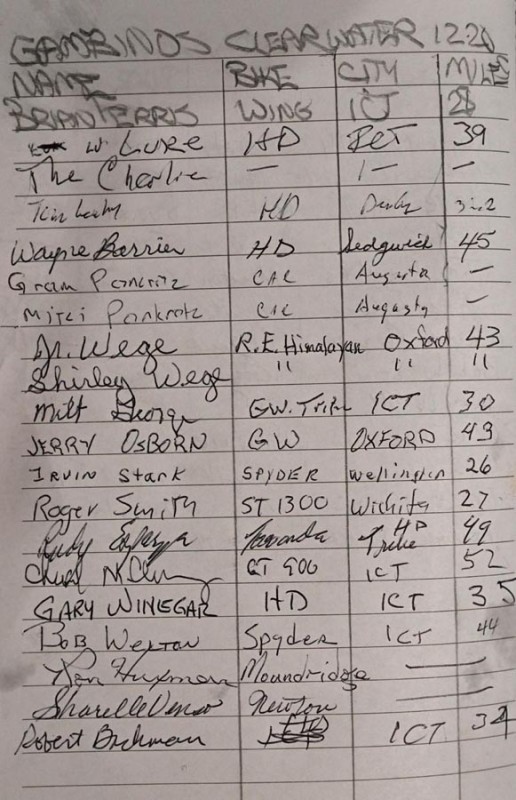 GAMBINOS CLEARWATER 12-20
NAME BIKE CITY MILES
BRIAN FERRIS WING ICT 28
W Luke HD 39
The Charlie — 1— —
HD Derby
Wayne Barrier HD Sedgwick 45
Gram Pancratz CAR Augusta —
Mitzi Pankratz CAR Augusta —
Dr. Wege R.E. Himalayan Oxford 43
Shirley Wege " " "
Milt George GW. Trike ICT 30
JERRY OSBORN GW OXFORD 49
IRVIN Stark SPYDER Wellington 26
Roger Smith ST 1300 Wichita 27
Rudy HD Trike 49
CT 900 ICT 52
GARY WINEGAR HD ICT 35
BOB WESTON Spyder ICT 44
Ron Huxman Moundridge —
Newton —
Robert ICT 34